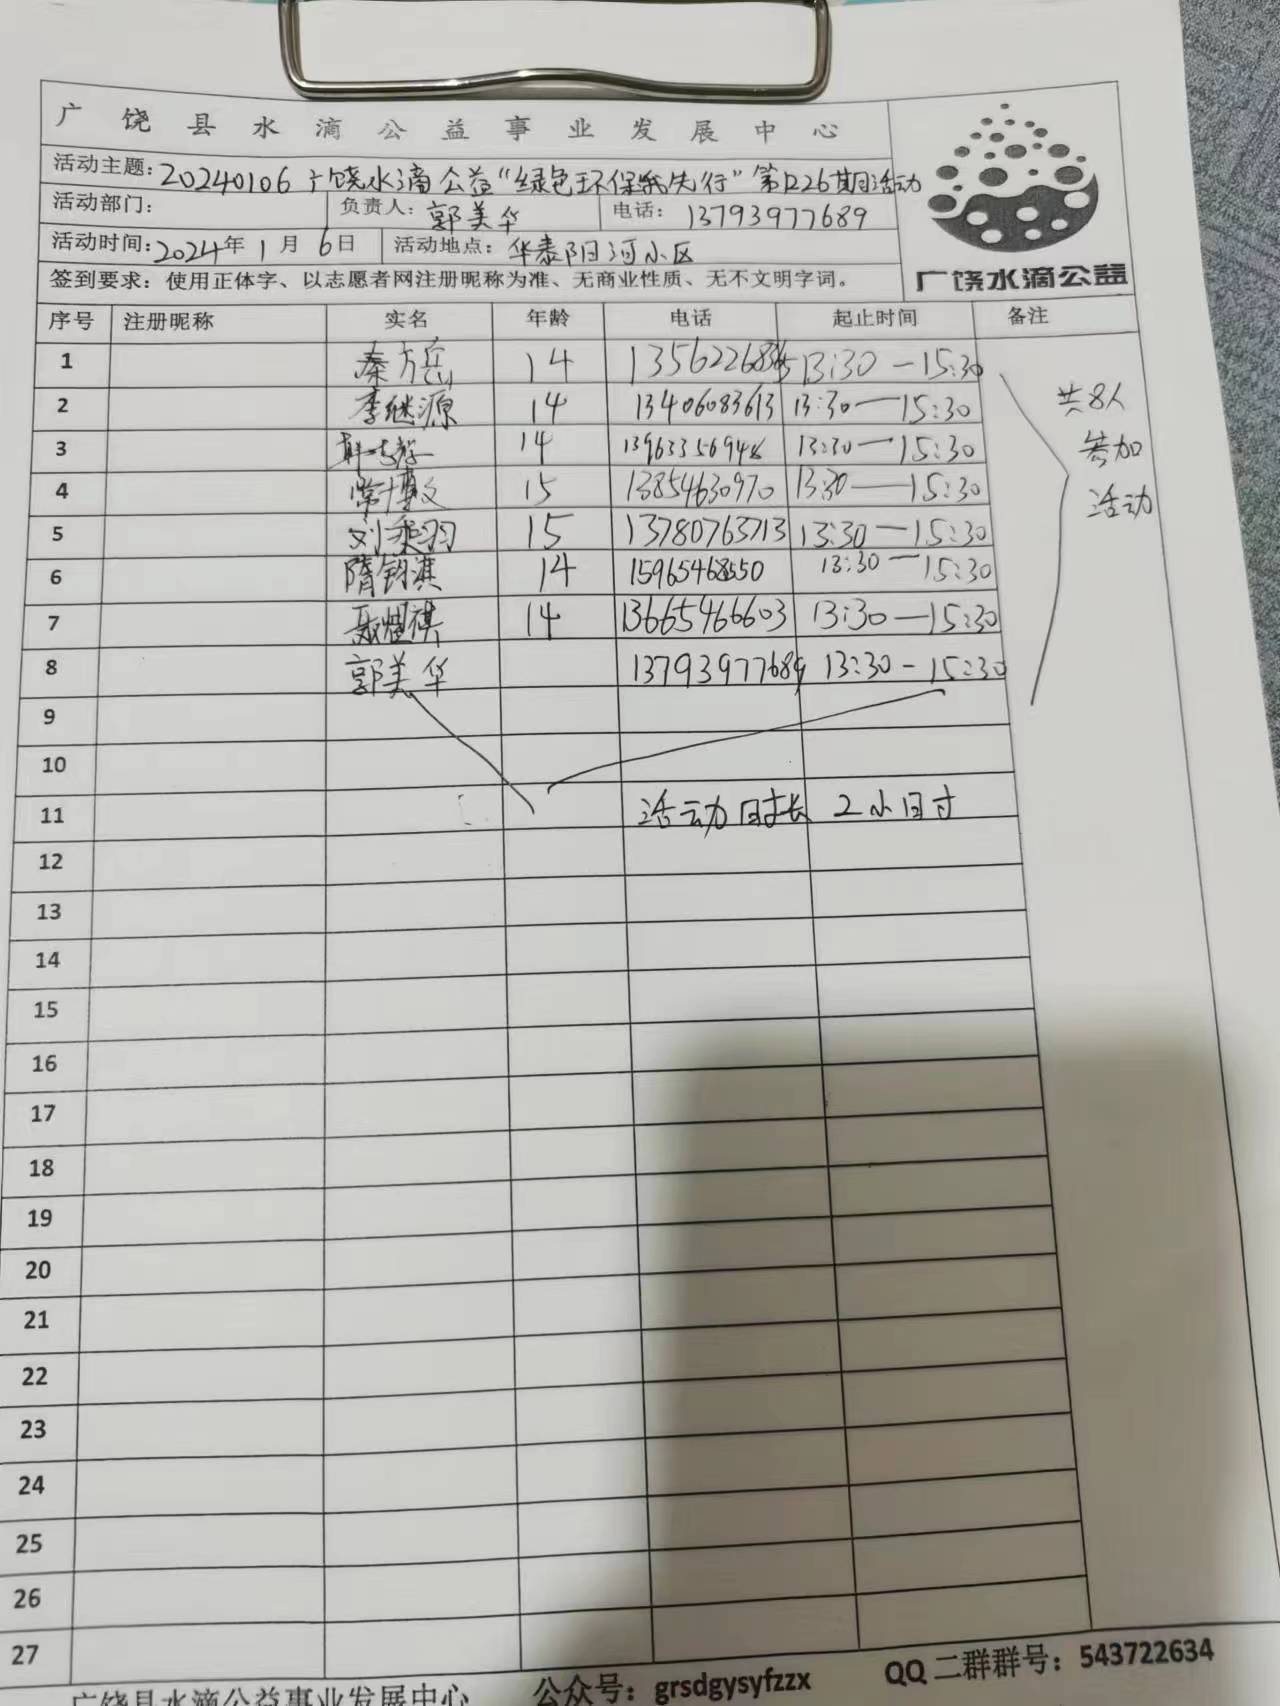 广饶县水滴公益事业发展中心
活动主题：20240106 广饶水滴公益“绿色环保我先行”第1226期活动
活动部门： 负责人：郭美华 电话：13793977689
活动时间：2024年1月6日 活动地点：华泰阳河小区
签到要求：使用正体字、以志愿者网注册昵称为准、无商业性质、无不文明字词。
广饶水滴公益
序号 注册昵称 实名 年龄 电话 起止时间 备注
1 秦方岳 14 13:30—15:30
2 李继源 14 13406083613 13:30—15:30
3 14 13:30—15:30
4 常博文 15 13854630970 13:30—15:30
5 刘乘羽 15 13780763713 13:30—15:30
6 隋钧淇 14 15965468550 13:30—15:30
7 聂煜祺 14 13665466603 13:30—15:30
8 郭美华 13793977689 13:30-15:30
共8人
参加
活动
9
10
11 活动时长 2小时
12
13
14
15
16
17
18
19
20
21
22
23
24
25
26
27
广饶县水滴公益事业发展中心 公众号：grsdgysyfzzx QQ二群群号：543722634